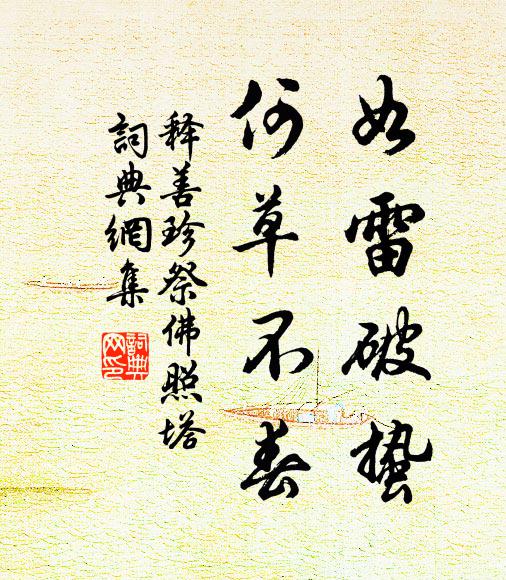 如雷破蛰
何草不春
释善珍祭佛照塔
詞典網集
詞典
网印